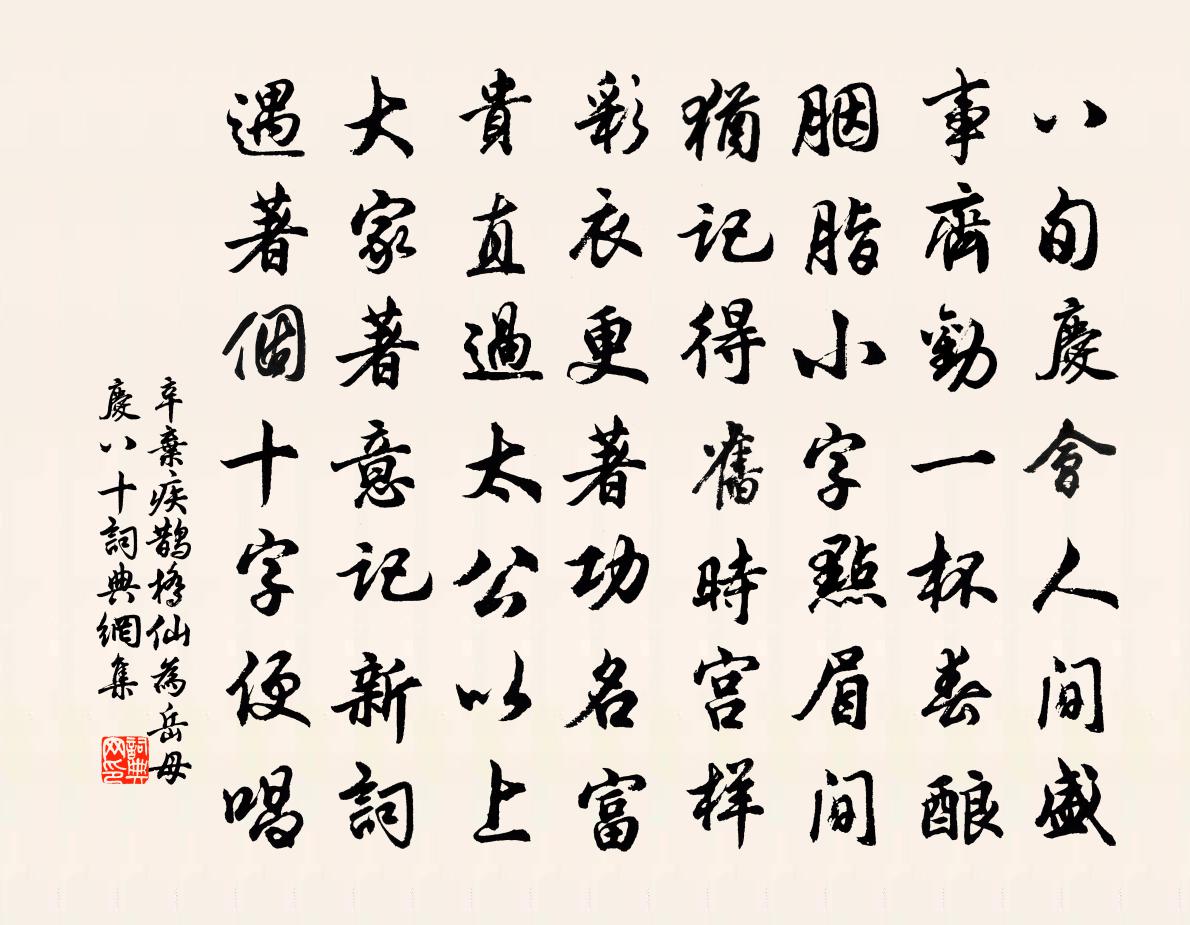 八旬慶會人间盛
事齊勸一杯春酿
胭脂小字點眉间
猶記得舊時宫样
彩衣更著功名富
貴直過太公以上
大家著意記新詞
遇著個十字便唱
辛棄疾鵲橋仙為岳母
慶八十詞典網集
詞典
网印